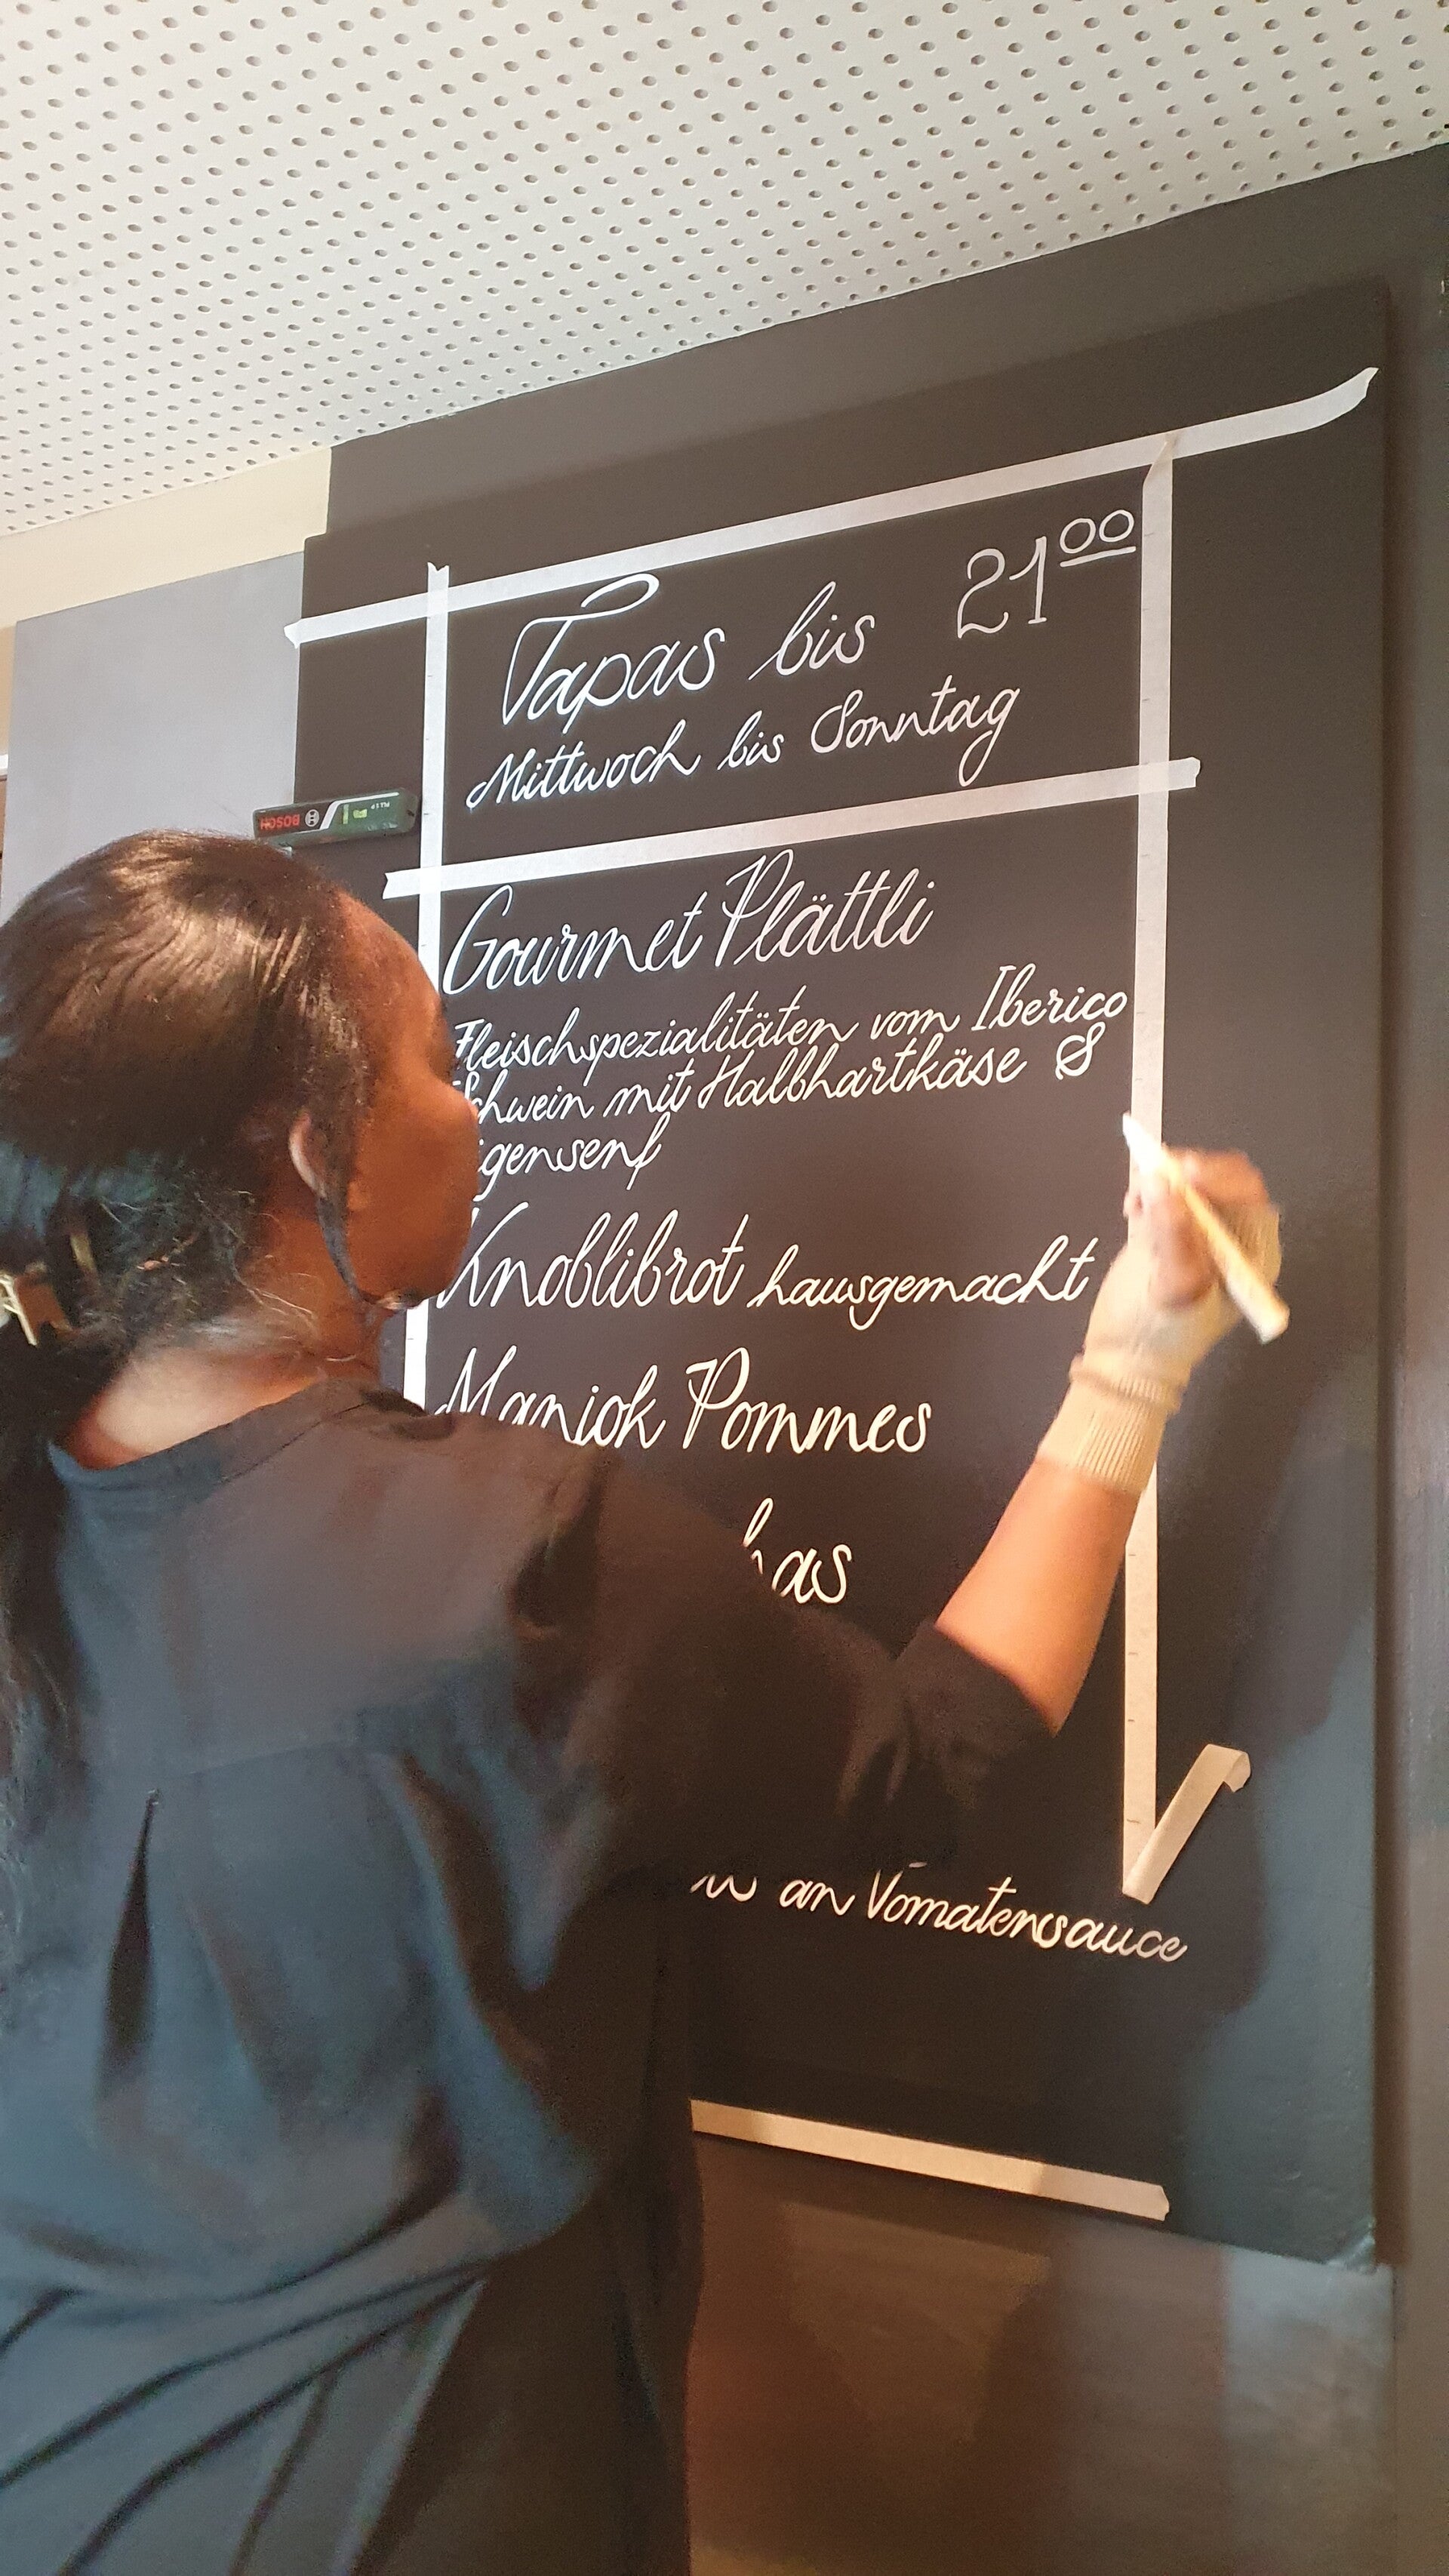 Tapas bis 21⁰⁰
Mittwoch bis Sonntag
BOSCH
Gourmet Plättli
Fleischspezialitäten vom Iberico
Schwein mit Halbhartkäse &
igensenf
Knoblibrot hausgemacht
Maniok Pommes
has
an Tomatensauce